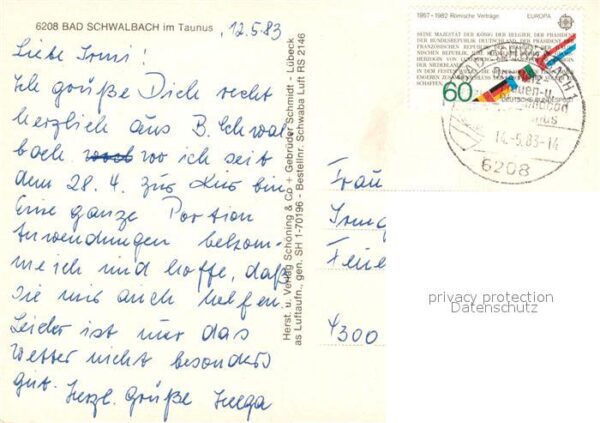 6208 BAD SCHWALBACH im Taunus
, 12.5.83
Liebe Irmi!
Ich grüße Dich recht
herzlich aus B. Schwal
bach wo ich seit
dem 28.4. zur Kur bin
Eine ganze Portion
Anwendungen bekom-
me ich und hoffe, daß
sie mir auch helfen.
Leider ist nur das
Wetter nicht besonders
gut. Herzl. Grüße Helga
Herst. u. Verlag Schöning & Co + Gebrüder Schmidt - Lübeck
as Luftaufn., gen. SH 1-70196 - Bestellnr. Schwaba Luft RS 2146
1957-1982 Römische Verträge EUROPA
SEINE MAJESTÄT DER KÖNIG DER BELGIER, DER PRÄSIDENT
DER BUNDESREPUBLIK DEUTSCHLAND, DER PRÄSIDENT
FRANZÖSISCHEN REPUBLIK
NISCHEN REPUBLIK, IHRE
HERZOGIN VON
DER NIEDERLANDE
60
DEUTSCHE BUNDESPOST
14.-5.83-14
6208
Frau
Irmg
Feier
4300
privacy protection
Datenschutz